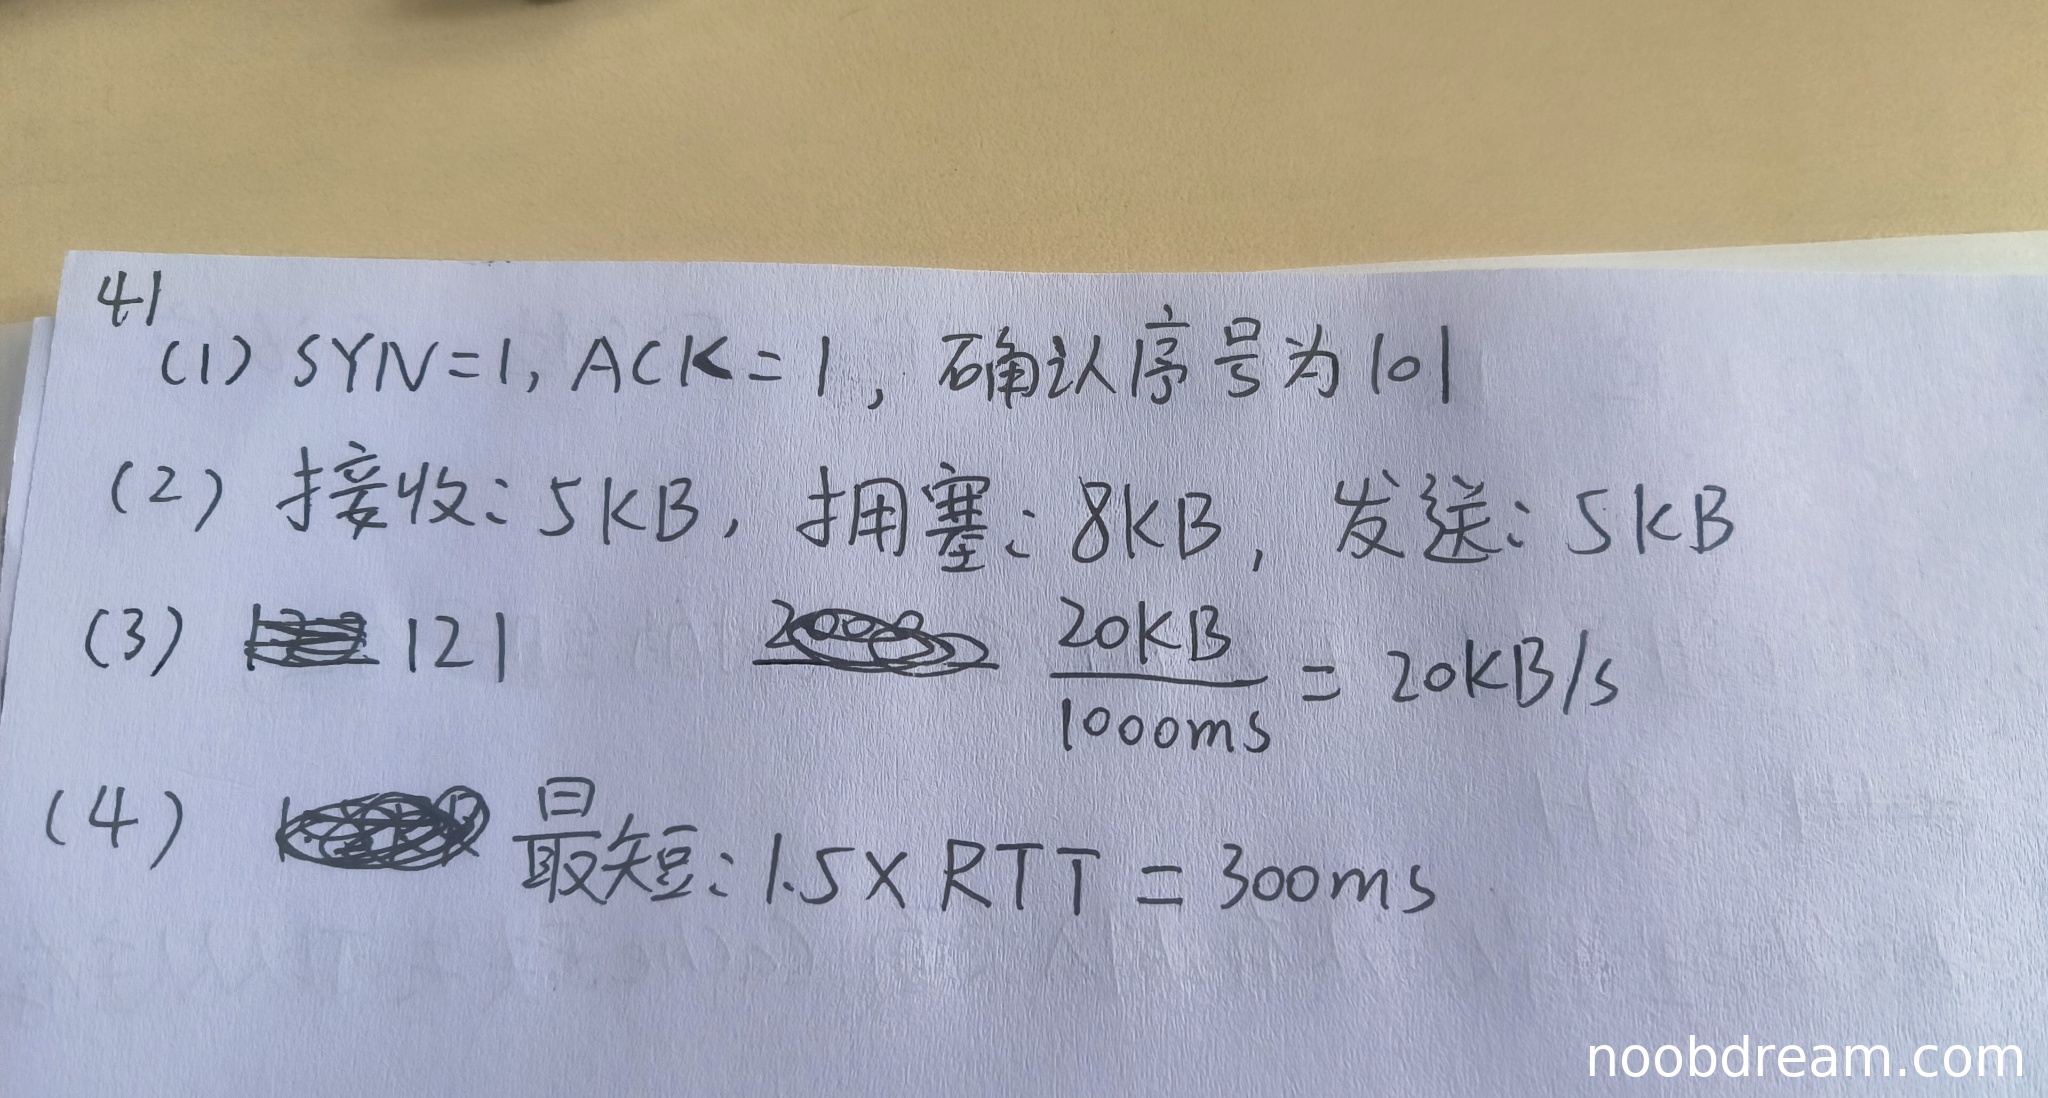 41
(1) SYN=1, ACK=1, 确认序号为101
(2) 接收: 5KB, 拥塞: 8KB, 发送: 5KB
(3) 121 20KB/1000ms = 20KB/s
(4) 最短: 1.5×RTT = 300ms
noobdream.com